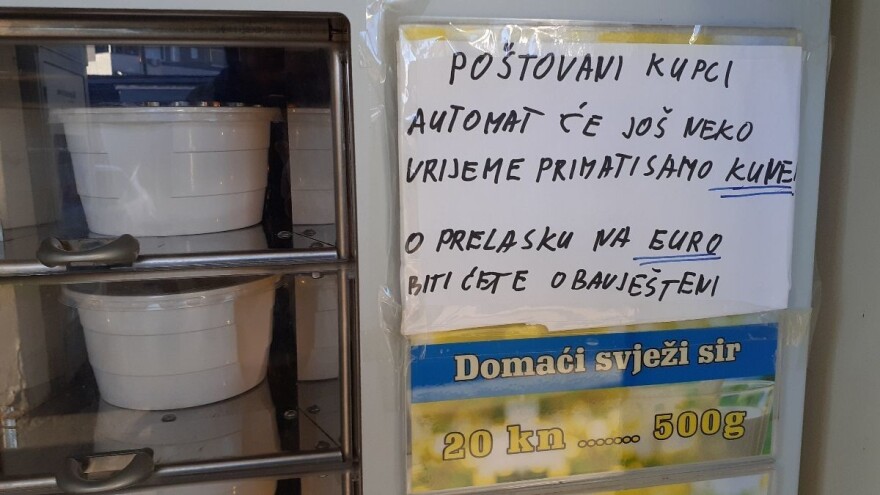 POŠTOVANI KUPCI
AUTOMAT ĆE JOŠ NEKO
VRIJEME PRIMATI SAMO KUNE!
O PRELASKU NA EURO
BITI ĆETE OBAVJEŠTENI
Domaći svježi sir
20 kn ....... 500g